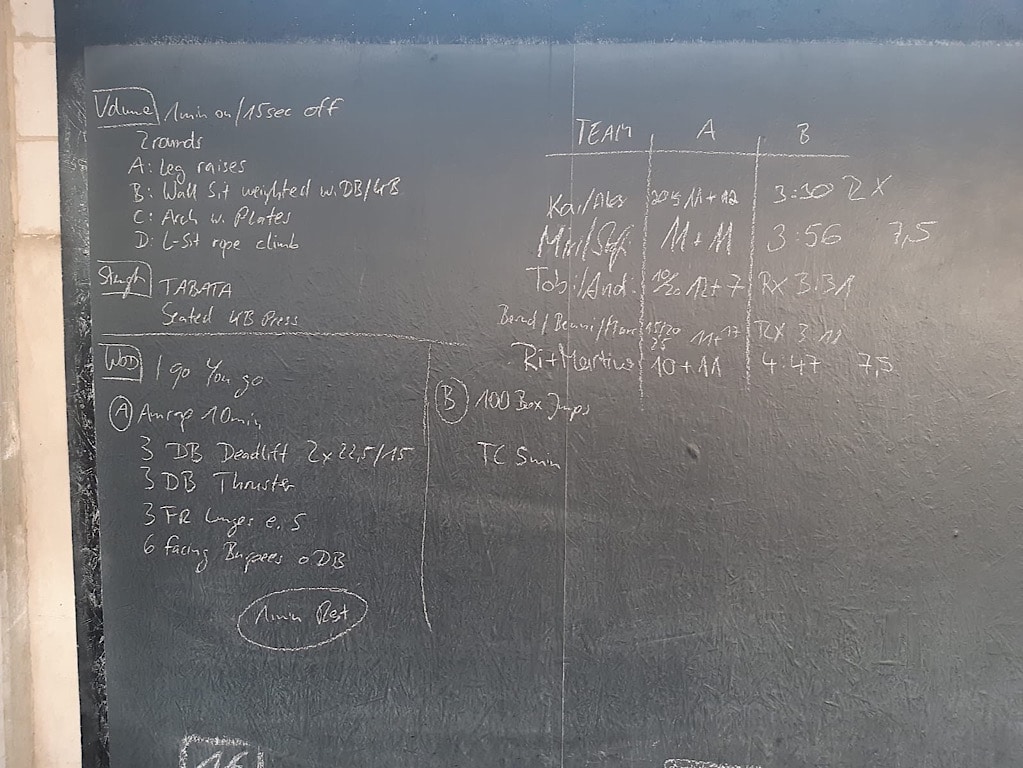 Volume 1min on/15sec off
2rounds
A: Leg raises
B: Wall Sit weighted w. DB/KB
C: Arch w. Plates
D: L-Sit rope climb
Strength TABATA
Seated KB Press
WOD I go You go
A Amrap 10min
3 DB Deadlift 2x22,5/15
3 DB Thruster
3 FR Lunges e. S
6 facing Burpees o DB
1min Rest
B 100 Box Jumps
TC 5min
TEAM A B
11+12 3:30 RX
11+11 3:56 7,5
Tobi/Andi 12+7 RX 3:31
Bernd/Benni/ 15/20 25 11+17 RX 3 11
Ri+Martina 10+11 4:47 7,5
16